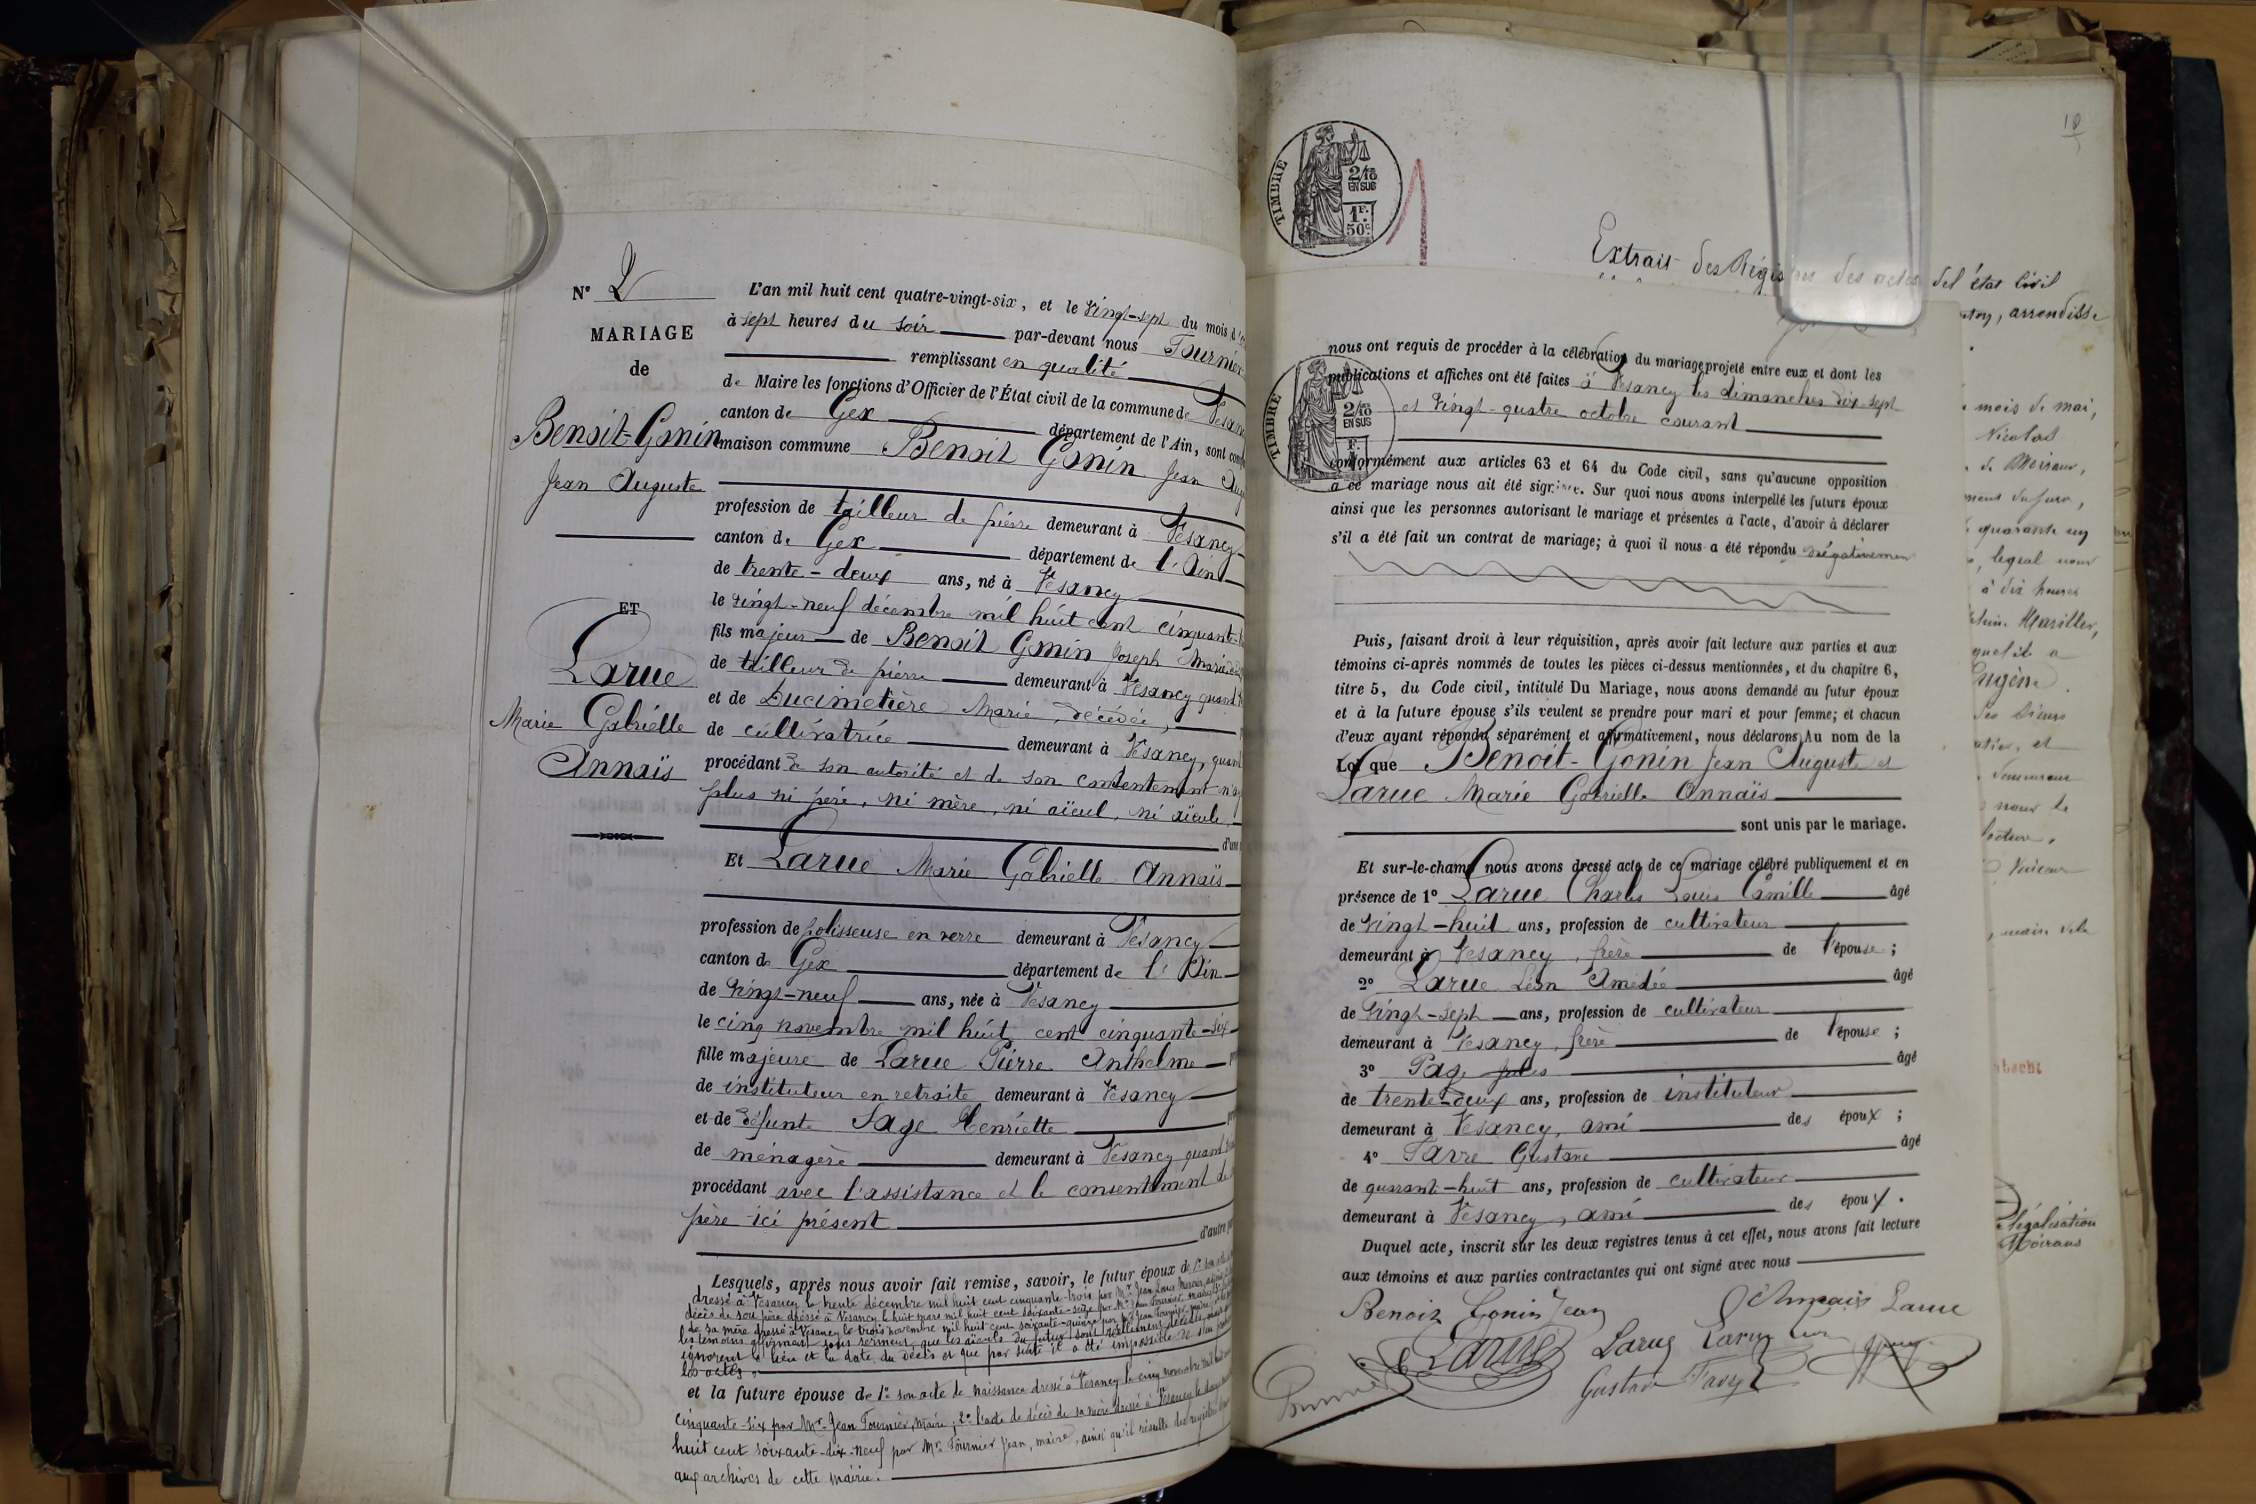 N° 2
MARIAGE
de
Benoit-Gonin
Jean Auguste
ET
Larue
Marie Gabrielle
Annaïs
L'an mil huit cent quatre-vingt-six, et le vingt-sept du mois d'
à sept heures du soir par-devant nous Fournier
remplissant en qualité
de Maire les fonctions d'Officier de l'État civil de la commune de Vesancy
canton de Gex département de l'Ain, sont
maison commune Benoit Gonin Jean
profession de tailleur de pierre demeurant à Vesancy
canton de Gex département de l'Ain
de trente-deux ans, né à Vesancy
le vingt-neuf décembre mil huit cent cinquante
fils majeur de Benoit Gonin Joseph Marie
de tailleur de pierre demeurant à Vesancy quand
et de Ducimetière Marie, décédée,
de cultivatrice demeurant à Vesancy, quand
procédant de son autorité et de son consentement
plus ni père, ni mère, ni aïeul, ni aïeule,
d'une
Et Larue Marie Gabrielle Annaïs
profession de polisseuse en verre demeurant à Vesancy
canton de Gex département de l'Ain
de vingt-neuf ans, née à Vesancy
le cinq novembre mil huit cent cinquante-six
fille majeure de Larue Pierre Anthelme
de instituteur en retraite demeurant à Vesancy
et de défunte Sage Henriette
de ménagère demeurant à Vesancy quand
procédant avec l'assistance et le consentement de
père ici présent
d'autre
Lesquels, après nous avoir fait remise, savoir, le futur époux de 1° son
dressé à Vesancy le trente décembre mil huit cent cinquante-trois par Mr Jean Louis
décès de son père dressé à Vesancy le huit mars mil huit cent soixante-seize par Mr Jean Fournier, maire
de sa mère dressé à Vesancy le trois novembre mil huit cent soixante-quinze par Mr Jean Fournier, maire
les témoins affirmant sous serment que les aïeuls du futur sont réellement décédés, mais
ignorent le lieu et la date du décès et que par suite il a été impossible de s'en
les actes.
et la future épouse de 1° son acte de naissance dressé à Vesancy le cinq novembre mil huit
cinquante-six par Mr Jean Fournier, maire; 2° l'acte de décès de sa mère dressé à Vesancy le
huit cent soixante-dix-neuf par Mr Fournier Jean, maire, ainsi qu'il résulte des registres
aux archives de cette mairie.
18
TIMBRE
2/10
EN SUS
1F.
50c
1
Extrait des Régistres des actes de l'état Civil
arrondisse
TIMBRE
2/10
EN SUS
nous ont requis de procéder à la célébration du mariage projeté entre eux et dont les
publications et affiches ont été faites à Vesancy les dimanches dix-sept
et vingt-quatre octobre courant
conformément aux articles 63 et 64 du Code civil, sans qu'aucune opposition
à ce mariage nous ait été signifiée. Sur quoi nous avons interpellé les futurs époux
ainsi que les personnes autorisant le mariage et présentes à l'acte, d'avoir à déclarer
s'il a été fait un contrat de mariage; à quoi il nous a été répondu négativement
Puis, faisant droit à leur réquisition, après avoir fait lecture aux parties et aux
témoins ci-après nommés de toutes les pièces ci-dessus mentionnées, et du chapitre 6,
titre 5, du Code civil, intitulé Du Mariage, nous avons demandé au futur époux
et à la future épouse s'ils veulent se prendre pour mari et pour femme; et chacun
d'eux ayant répondu séparément et affirmativement, nous déclarons Au nom de la
Loi que Benoit-Gonin Jean Auguste et
Larue Marie Gabrielle Annaïs
sont unis par le mariage.
Et sur-le-champ nous avons dressé acte de ce mariage célébré publiquement et en
présence de 1° Larue Charles Louis Camille âgé
de vingt-huit ans, profession de cultivateur
demeurant à Vesancy, frère de l'épouse;
2° Larue Léon Amédée âgé
de vingt-sept ans, profession de cultivateur
demeurant à Vesancy, frère de l'épouse;
3° Page Jules âgé
de trente-deux ans, profession de instituteur
demeurant à Vesancy, ami des époux;
4° Favre Gustave âgé
de quarante-huit ans, profession de cultivateur
demeurant à Vesancy, ami des époux.
Duquel acte, inscrit sur les deux registres tenus à cet effet, nous avons fait lecture
aux témoins et aux parties contractantes qui ont signé avec nous
Benoit Gonin Jean Annais Larue
Larue Larue Larue
Gustave
mois de mai,
Nicolas
de Moirans,
quarante un
lequel nous
à dix heures
Eugène
et
légalisation
Moirans